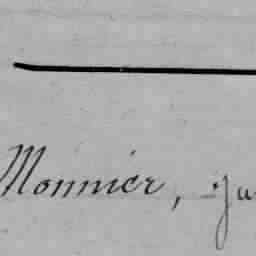 Monnier, Ju